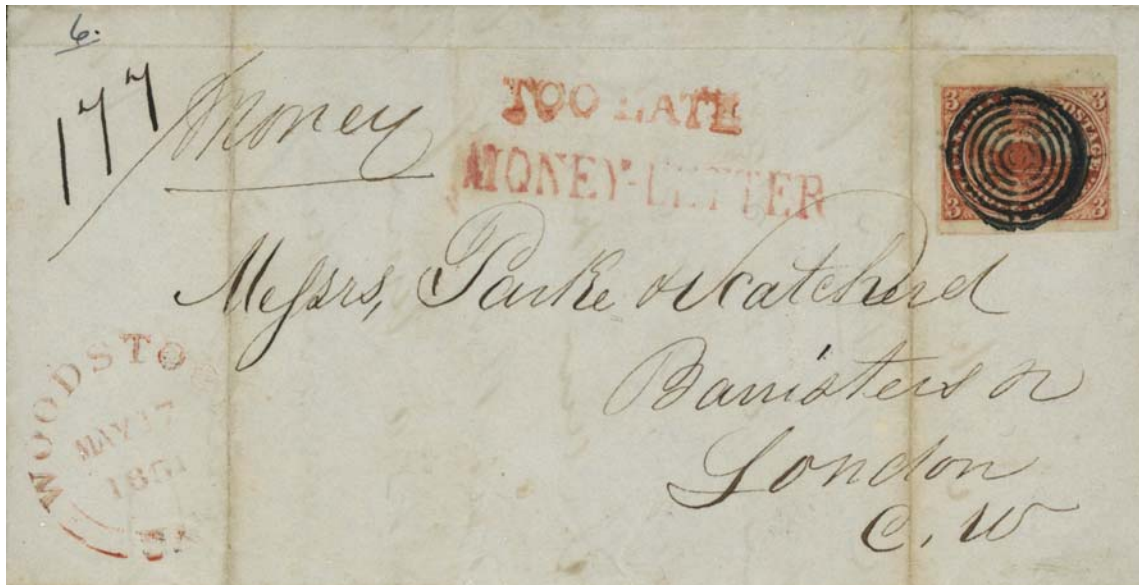 6.
177
Money
TOO LATE
MONEY-LETTER
3 POSTAGE 3
3 3
Messrs, Parke & Scatcherd
Barristers &c
London
C. W
WOODSTOCK
MAY 17
1851